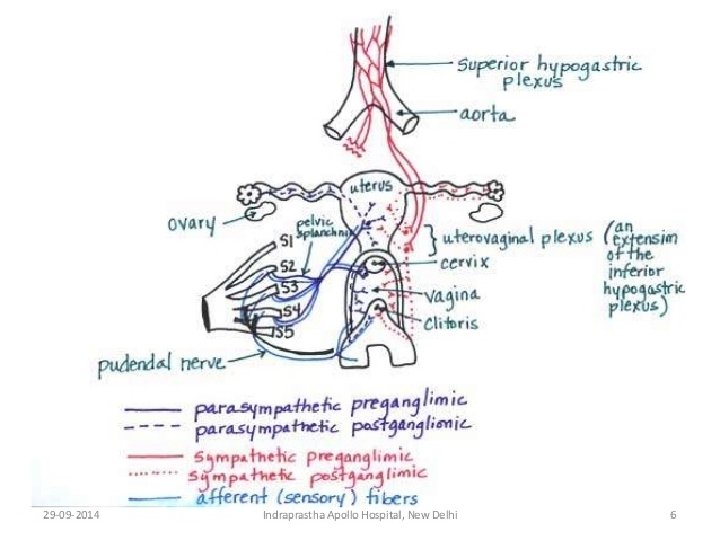 superior hypogastric
plexus
aorta
uterus
ovary
pelvic
splanchni
S1
S2
S3
S4
S5
uterovaginal plexus (an
extension
of the
inferior
hypogastric
plexus)
cervix
vagina
clitoris
pudendal nerve
parasympathetic preganglimic
parasympathetic postganglionic
sympathetic preganglimic
sympathetic postganglimic
afferent (sensory) fibers
29-09-2014
Indraprastha Apollo Hospital, New Delhi
6